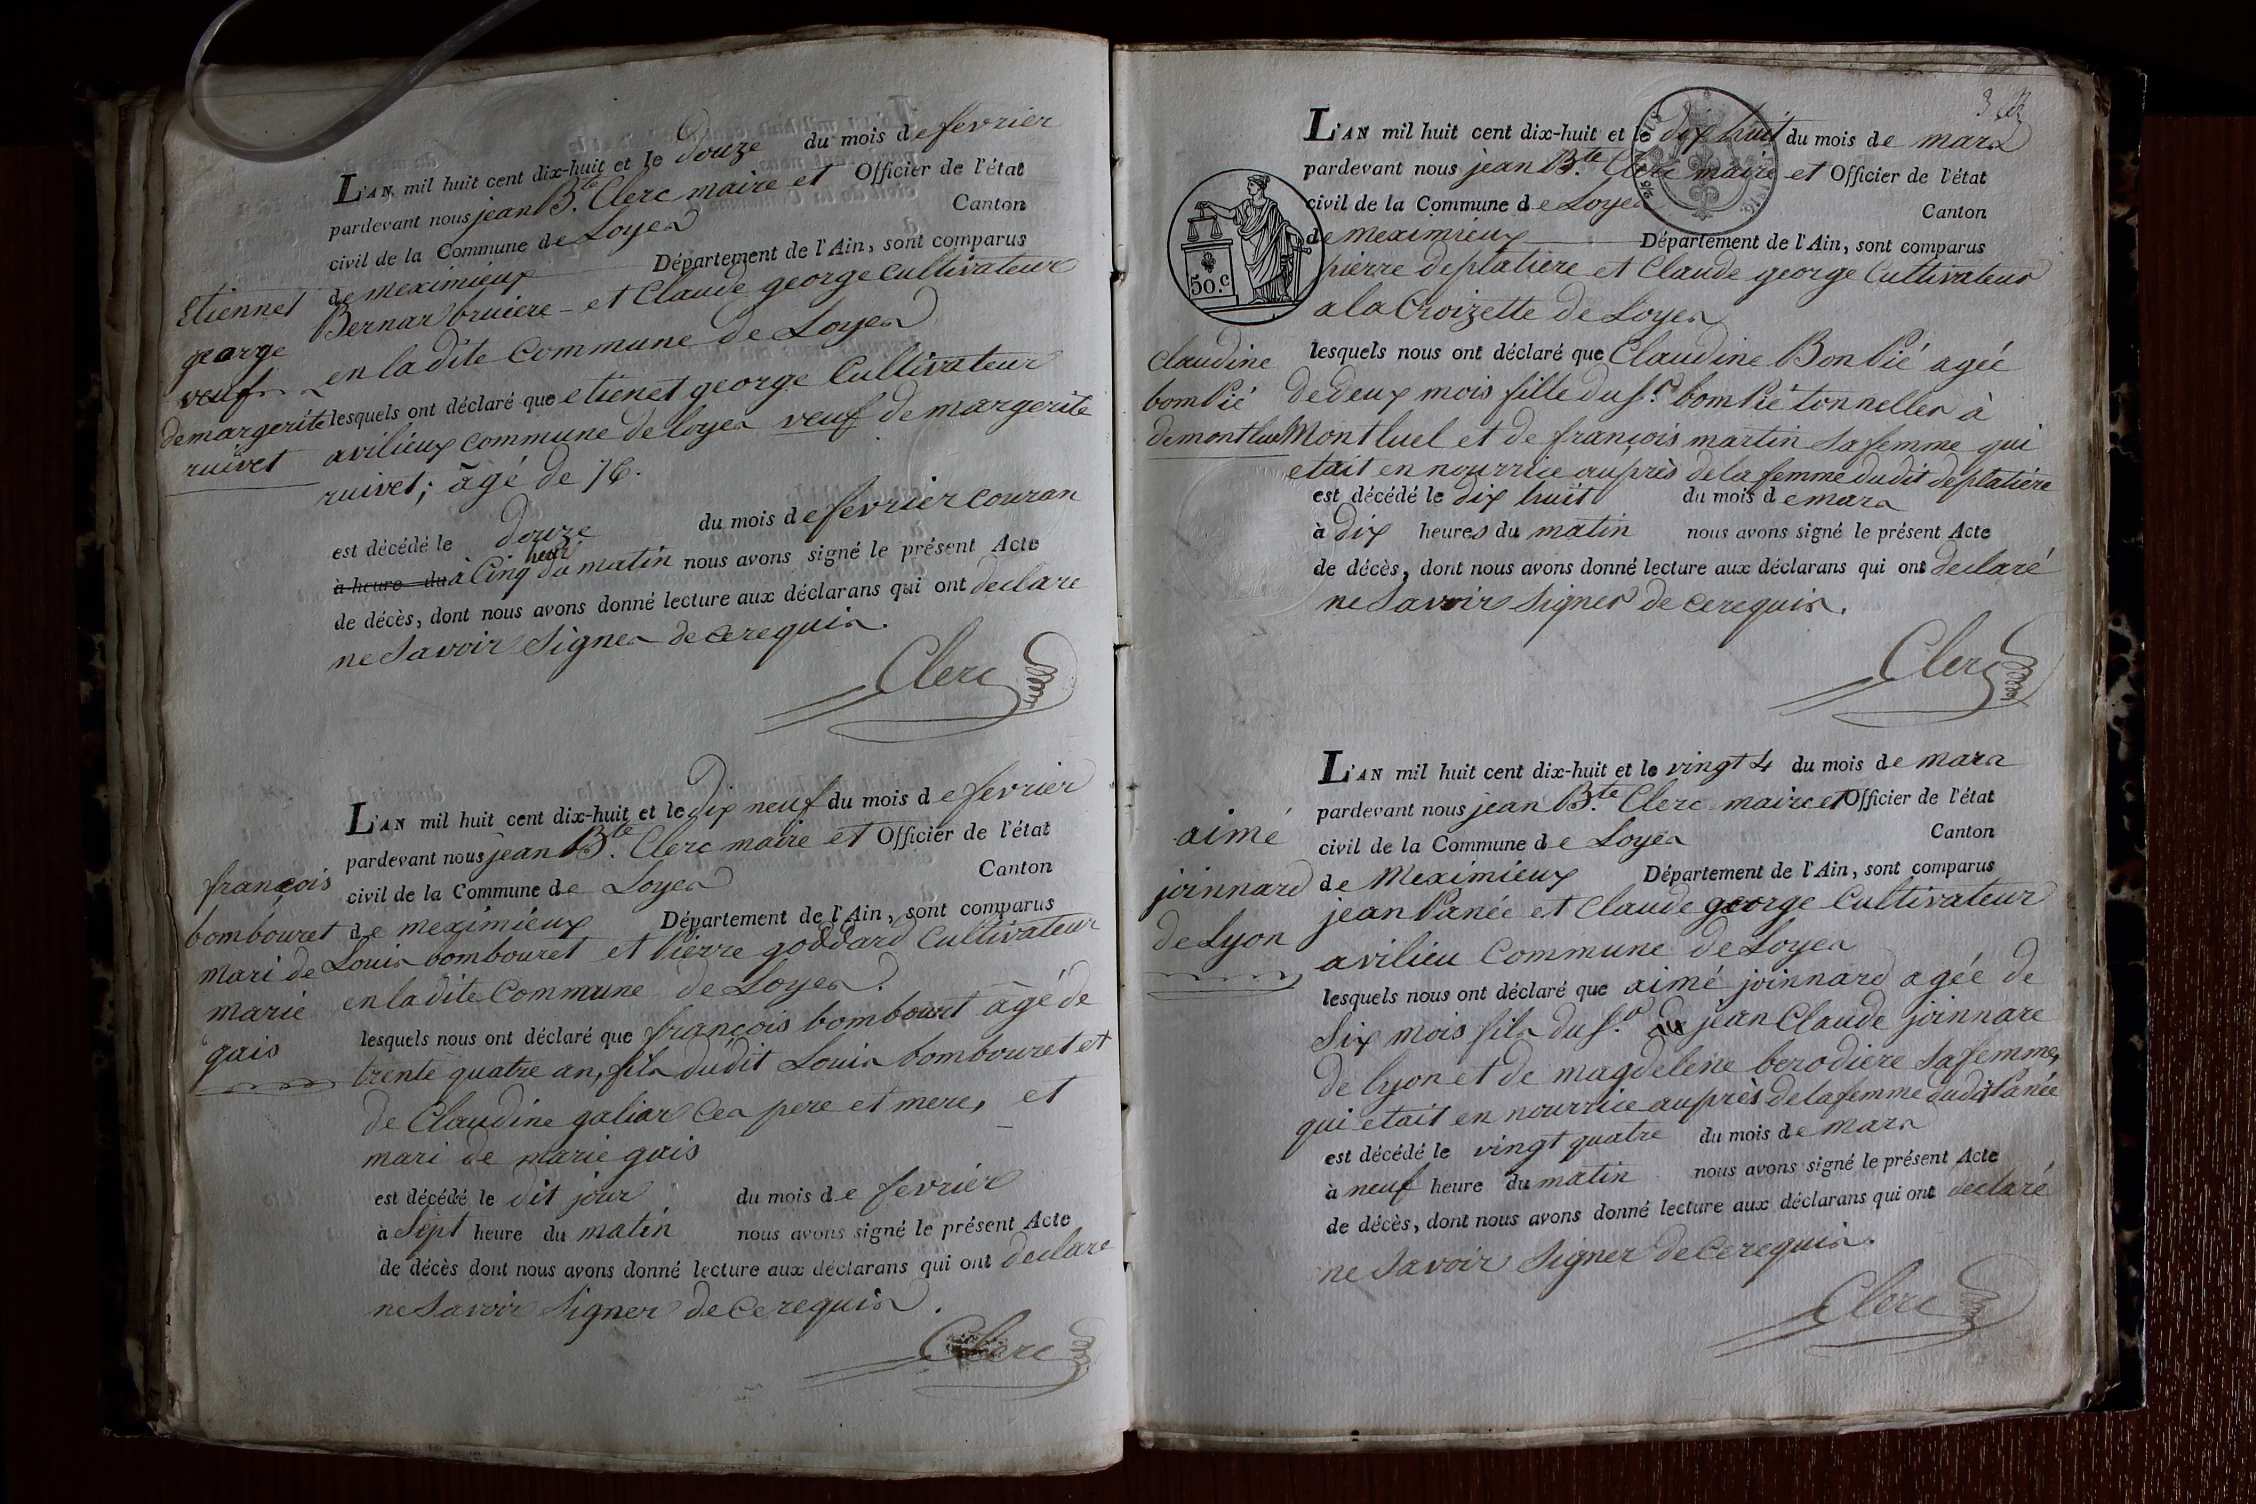 L'AN mil huit cent dix-huit et le douze du mois de fevrier
pardevant nous jean B.te Clerc maire et Officier de l'état
civil de la Commune de Loyes Canton
de meximieux Département de l'Ain, sont comparus
Bernar bruiere - et Claude george Cultivateur
en la dite Commune de Loyes
lesquels ont déclaré que etienet george Cultivateur
a vilieux commune de loyes veuf de margerite
ruivet; âgé de 76.
est décédé le douze du mois de fevrier couran
à heure du à Cinq heur du matin nous avons signé le présent Acte
de décès, dont nous avons donné lecture aux déclarans qui ont declare
ne Savoir Signer de ce requis.
Clerc
Etiennet
george
veuf
de margerite
ruivet
L'AN mil huit cent dix-huit et le dix neuf du mois de fevrier
pardevant nous jean B.te Clerc maire et Officier de l'état
civil de la Commune de Loyes Canton
de meximieux Département de l'Ain, sont comparus
Louis bombouret et Pierre goddard Cultivateur
en la dite Commune de Loyes.
lesquels nous ont déclaré que françois bombouret âgé de
trente quatre an, fils dudit Louis bombouret et
de Claudine galiar Ces pere et mere, et
mari de marie gais
est décédé le dit jour du mois de fevrier
à Sept heure du matin nous avons signé le présent Acte
de décès dont nous avons donné lecture aux déclarans qui ont declare
ne Savoir Signer de Ce requis.
Clerc
françois
bombouret
mari de
marie
gais
L'AN mil huit cent dix-huit et le dix huit du mois de mars
pardevant nous jean B.te Clerc maire et Officier de l'état
civil de la Commune de Loyes Canton
de meximieux Département de l'Ain, sont comparus
pierre deplatiere et Claude george Cultivateur
a la Croizette de Loyes
lesquels nous ont déclaré que Claudine Bon Pié agée
de deux mois fille du S.r bom Pié tonnelier à
Montluel et de françois martin Sa femme qui
etait en nourrice auprès de la femme dudit deplatière
est décédé le dix huit du mois de mars
à dix heures du matin nous avons signé le présent Acte
de décès, dont nous avons donné lecture aux déclarans qui ont declaré
ne Savoir Signer de ce requis.
Clerc
50.c
claudine
bom Pié
de montluel
L'AN mil huit cent dix-huit et le vingt 4 du mois de mars
pardevant nous jean B.te Clerc maire et Officier de l'état
civil de la Commune de Loyes Canton
de Meximieux Département de l'Ain, sont comparus
jean Panée et Claude george Cultivateur
a vilieu Commune de Loyes
lesquels nous ont déclaré que aimé joinnard agée de
Six mois fils du S.r jean Claude joinnare
de lyon et de magdeleine berodiere Sa femme,
qui etait en nourrice auprès de la femme dudit Panée
est décédé le vingt quatre du mois de mars
à neuf heure du matin nous avons signé le présent Acte
de décès, dont nous avons donné lecture aux déclarans qui ont declaré
ne Savoir Signer de Ce requis.
Clerc
aimé
joinnard
de Lyon